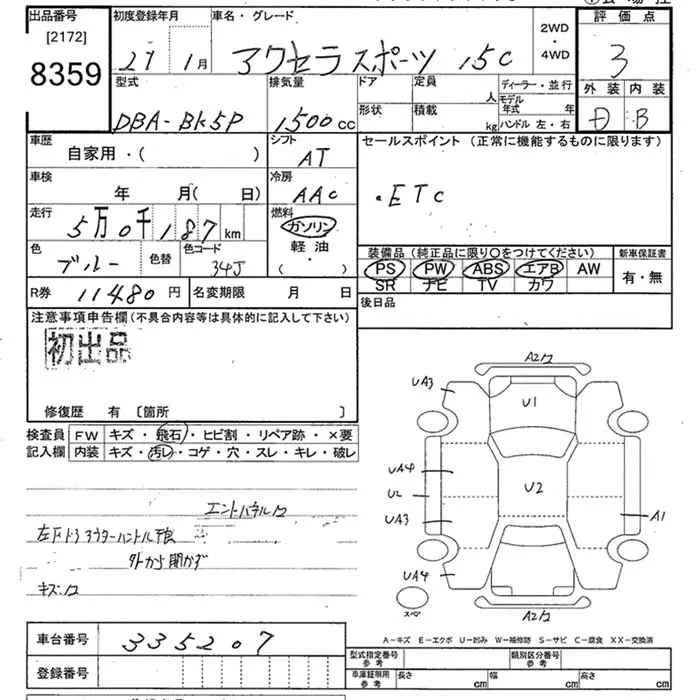 出品番号
[2172]
8359
初度登録年月
27 1月
車名・グレード
アクセラスポーツ 15C
2WD
・
4WD
評価点
3
外装 内装
D B
型式
DBA-BK5P
排気量
1500cc
ドア
形状
定員 人
積載 kg
ディーラー・並行
モデル年式 年
ハンドル 左・右
車歴
自家用・( )
シフト
AT
セールスポイント (正常に機能するものに限ります)
・ETC
車検
年 月( 日)
冷房
AAC
走行
5万0千187km
燃料
ガソリン
軽油
・( )
色
ブルー
色替
色コード
34J
装備品(純正品に限り〇をつけてください)
PS PW ABS エアB AW
SR ナビ TV カワ
新車保証書
有・無
R券 11480円
名変期限 月 日
後日品
注意事項申告欄(不具合内容等は具体的に記入して下さい)
初出品
修復歴 有 〔箇所 〕
検査員記入欄
FW キズ・飛石・ヒビ割・リペア跡・×要
内装 キズ・汚レ・コゲ・穴・スレ・キレ・破レ
外から開かず
A2
UA3
U1
UA4
U2
U2
UA3
A1
UA4
スペア
A2
A-キズ E-エクボ U-凹み W-補修跡 S-サビ C-腐食 XX-交換済
車台番号 335207
登録番号
型式指定番号 参考
類別区分番号 参考
車庫証明用 参考
長さ cm 幅 cm 高さ cm